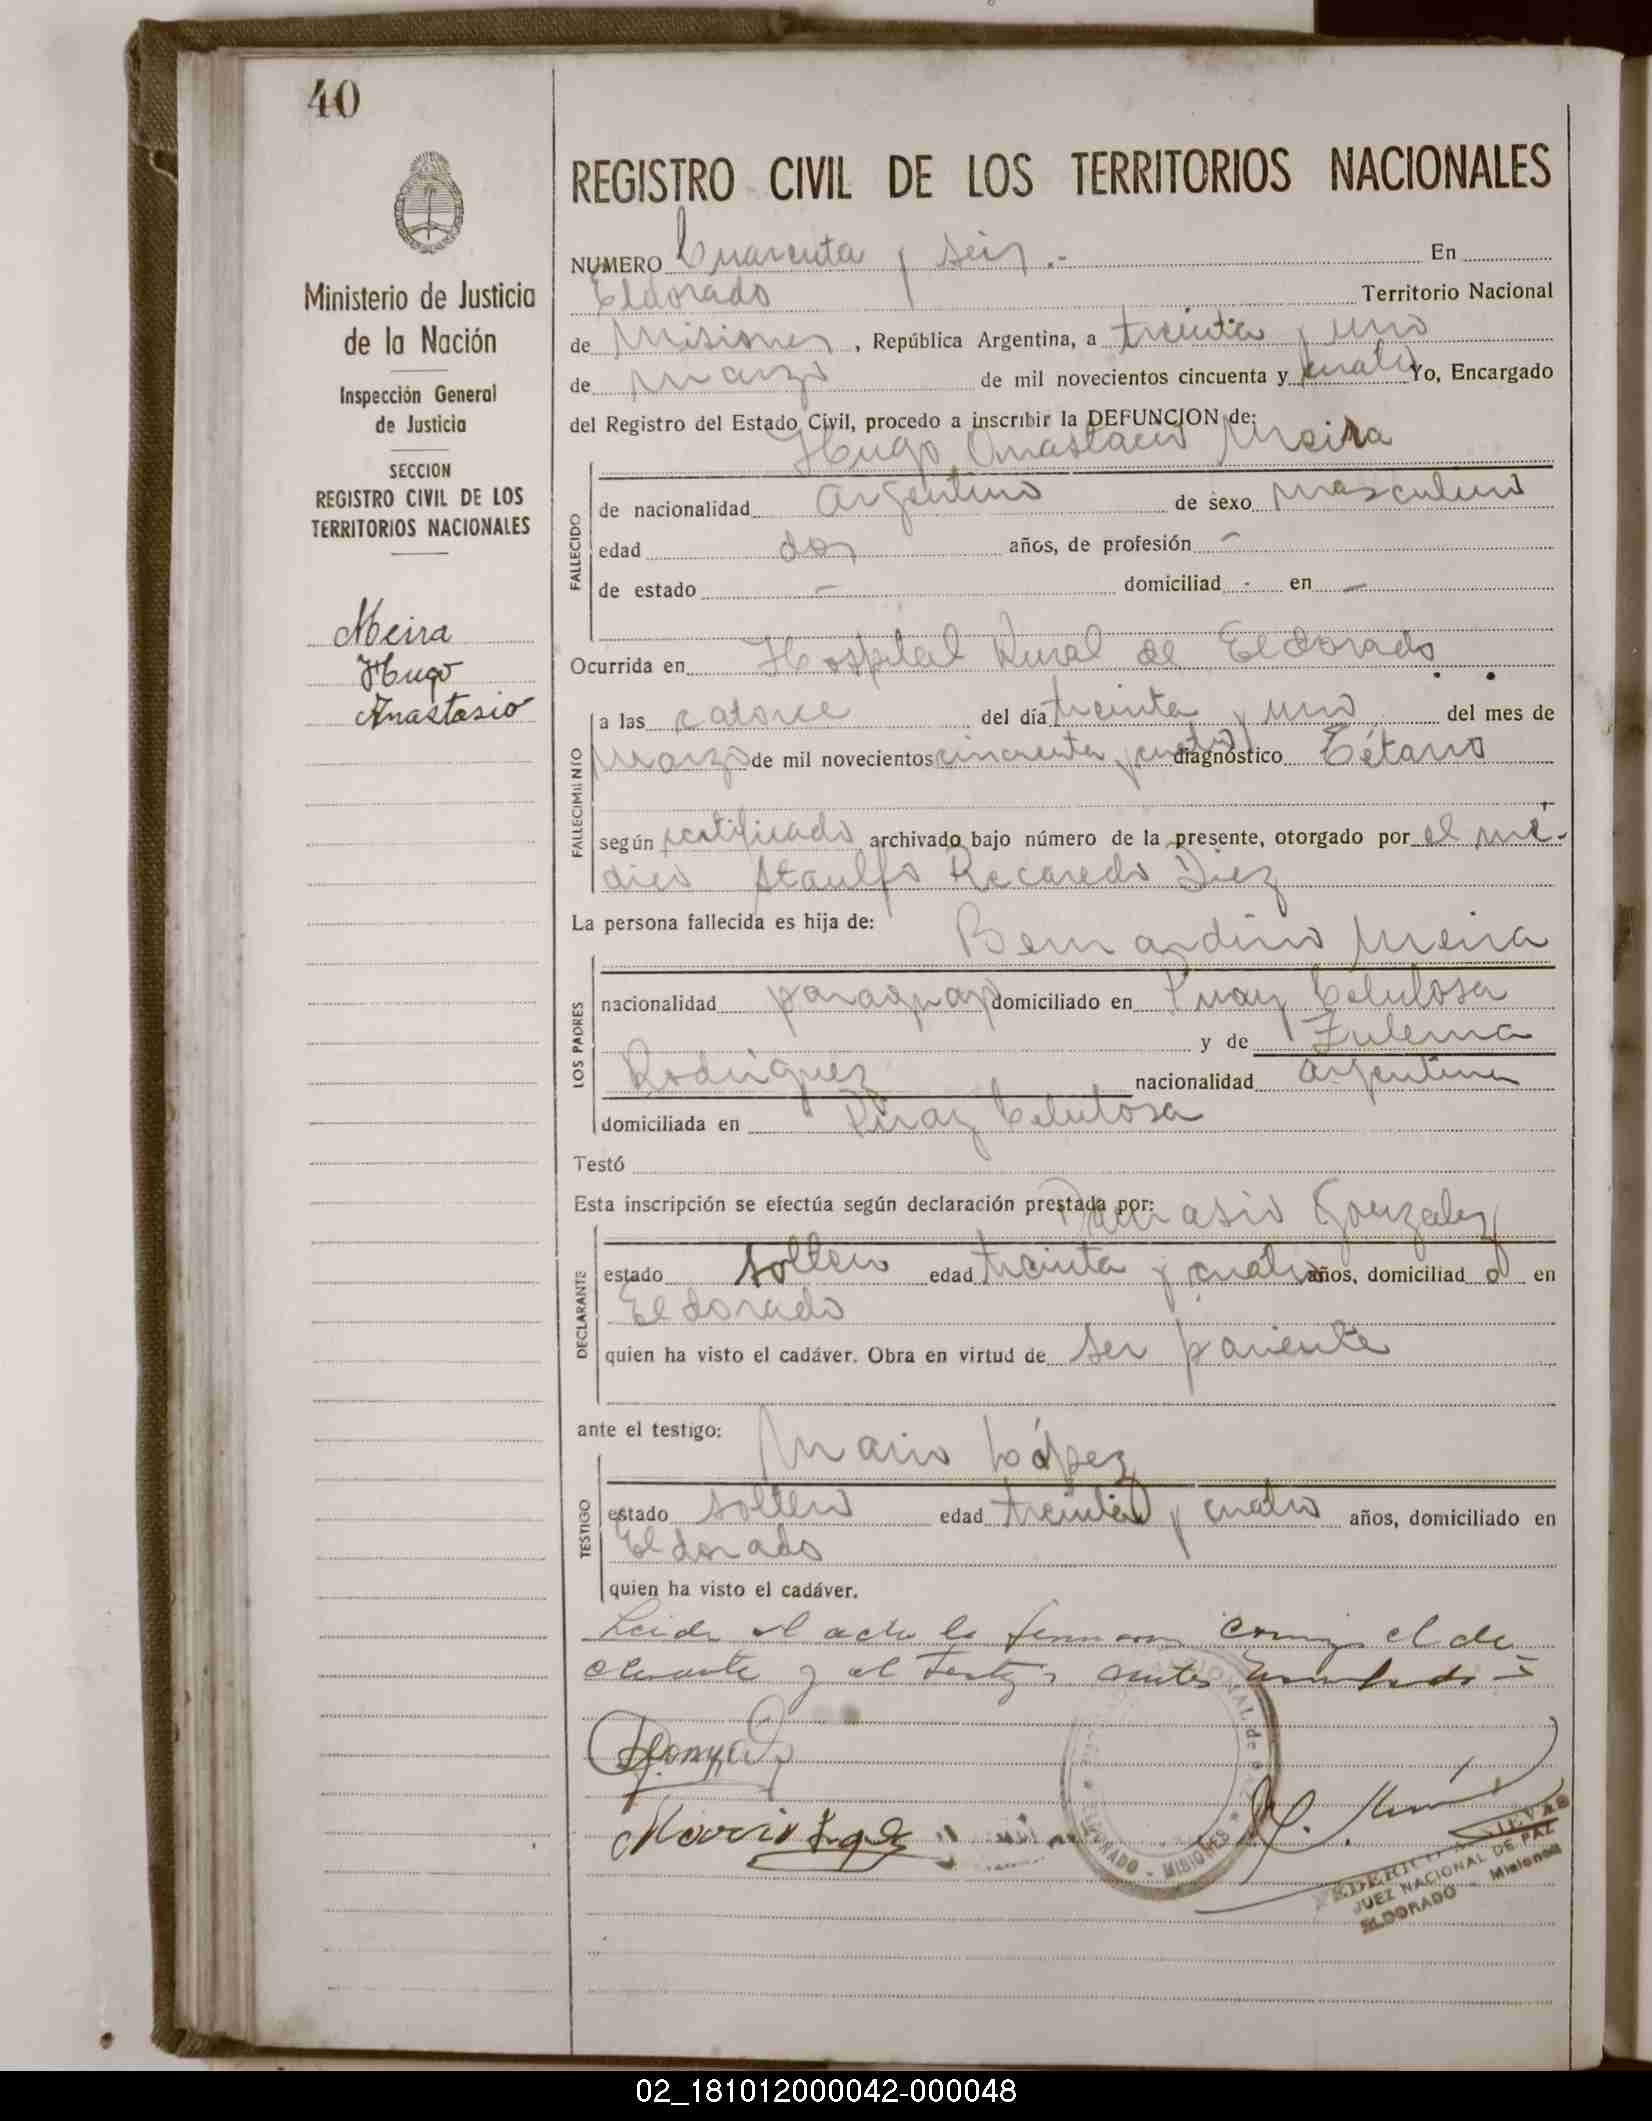 40
Ministerio de Justicia
de la Nación
Inspección General
de Justicia
SECCION
REGISTRO CIVIL DE LOS
TERRITORIOS NACIONALES
Meira
Hugo
Anastasio
REGISTRO CIVIL DE LOS TERRITORIOS NACIONALES
NUMERO Cuarenta y seis .- En
Eldorado Territorio Nacional
de Misiones, República Argentina, a treinta y uno
de marzo de mil novecientos cincuenta y cuatro Yo, Encargado
del Registro del Estado Civil, procedo a inscribir la DEFUNCION de:
Hugo Anastacio Meira
FALLECIDO
de nacionalidad argentino de sexo masculino
edad dos años, de profesión -
de estado - domiciliad - en -
Ocurrida en Hospital Rural de Eldorado
FALLECIMIENTO
a las catorce del día treinta y uno del mes de
marzo de mil novecientos cincuenta y cuatro diagnóstico Tétano
según certificado archivado bajo número de la presente, otorgado por el mé-
dico Ataulfo Recaredo Diez
La persona fallecida es hija de:
Bernardino Meira
LOS PADRES
nacionalidad paraguay domiciliado en Piray Celulosa
y de Zulema
Rodriguez nacionalidad argentina
domiciliada en Piray Celulosa
Testó
Esta inscripción se efectúa según declaración prestada por:
Damasio Gonzalez
DECLARANTE
estado soltero edad treinta y cuatro años, domiciliad o en
Eldorado
quien ha visto el cadáver. Obra en virtud de ser pariente
ante el testigo:
Mario López
TESTIGO
estado soltero edad treinta y cuatro años, domiciliado en
Eldorado
quien ha visto el cadáver.
Leida el acta la firman conmigo el de
clarante y el testigo antes
Mario
ELDORADO - MISIONES
JUEZ NACIONAL DE PAZ
ELDORADO - Misiones
02_181012000042-000048